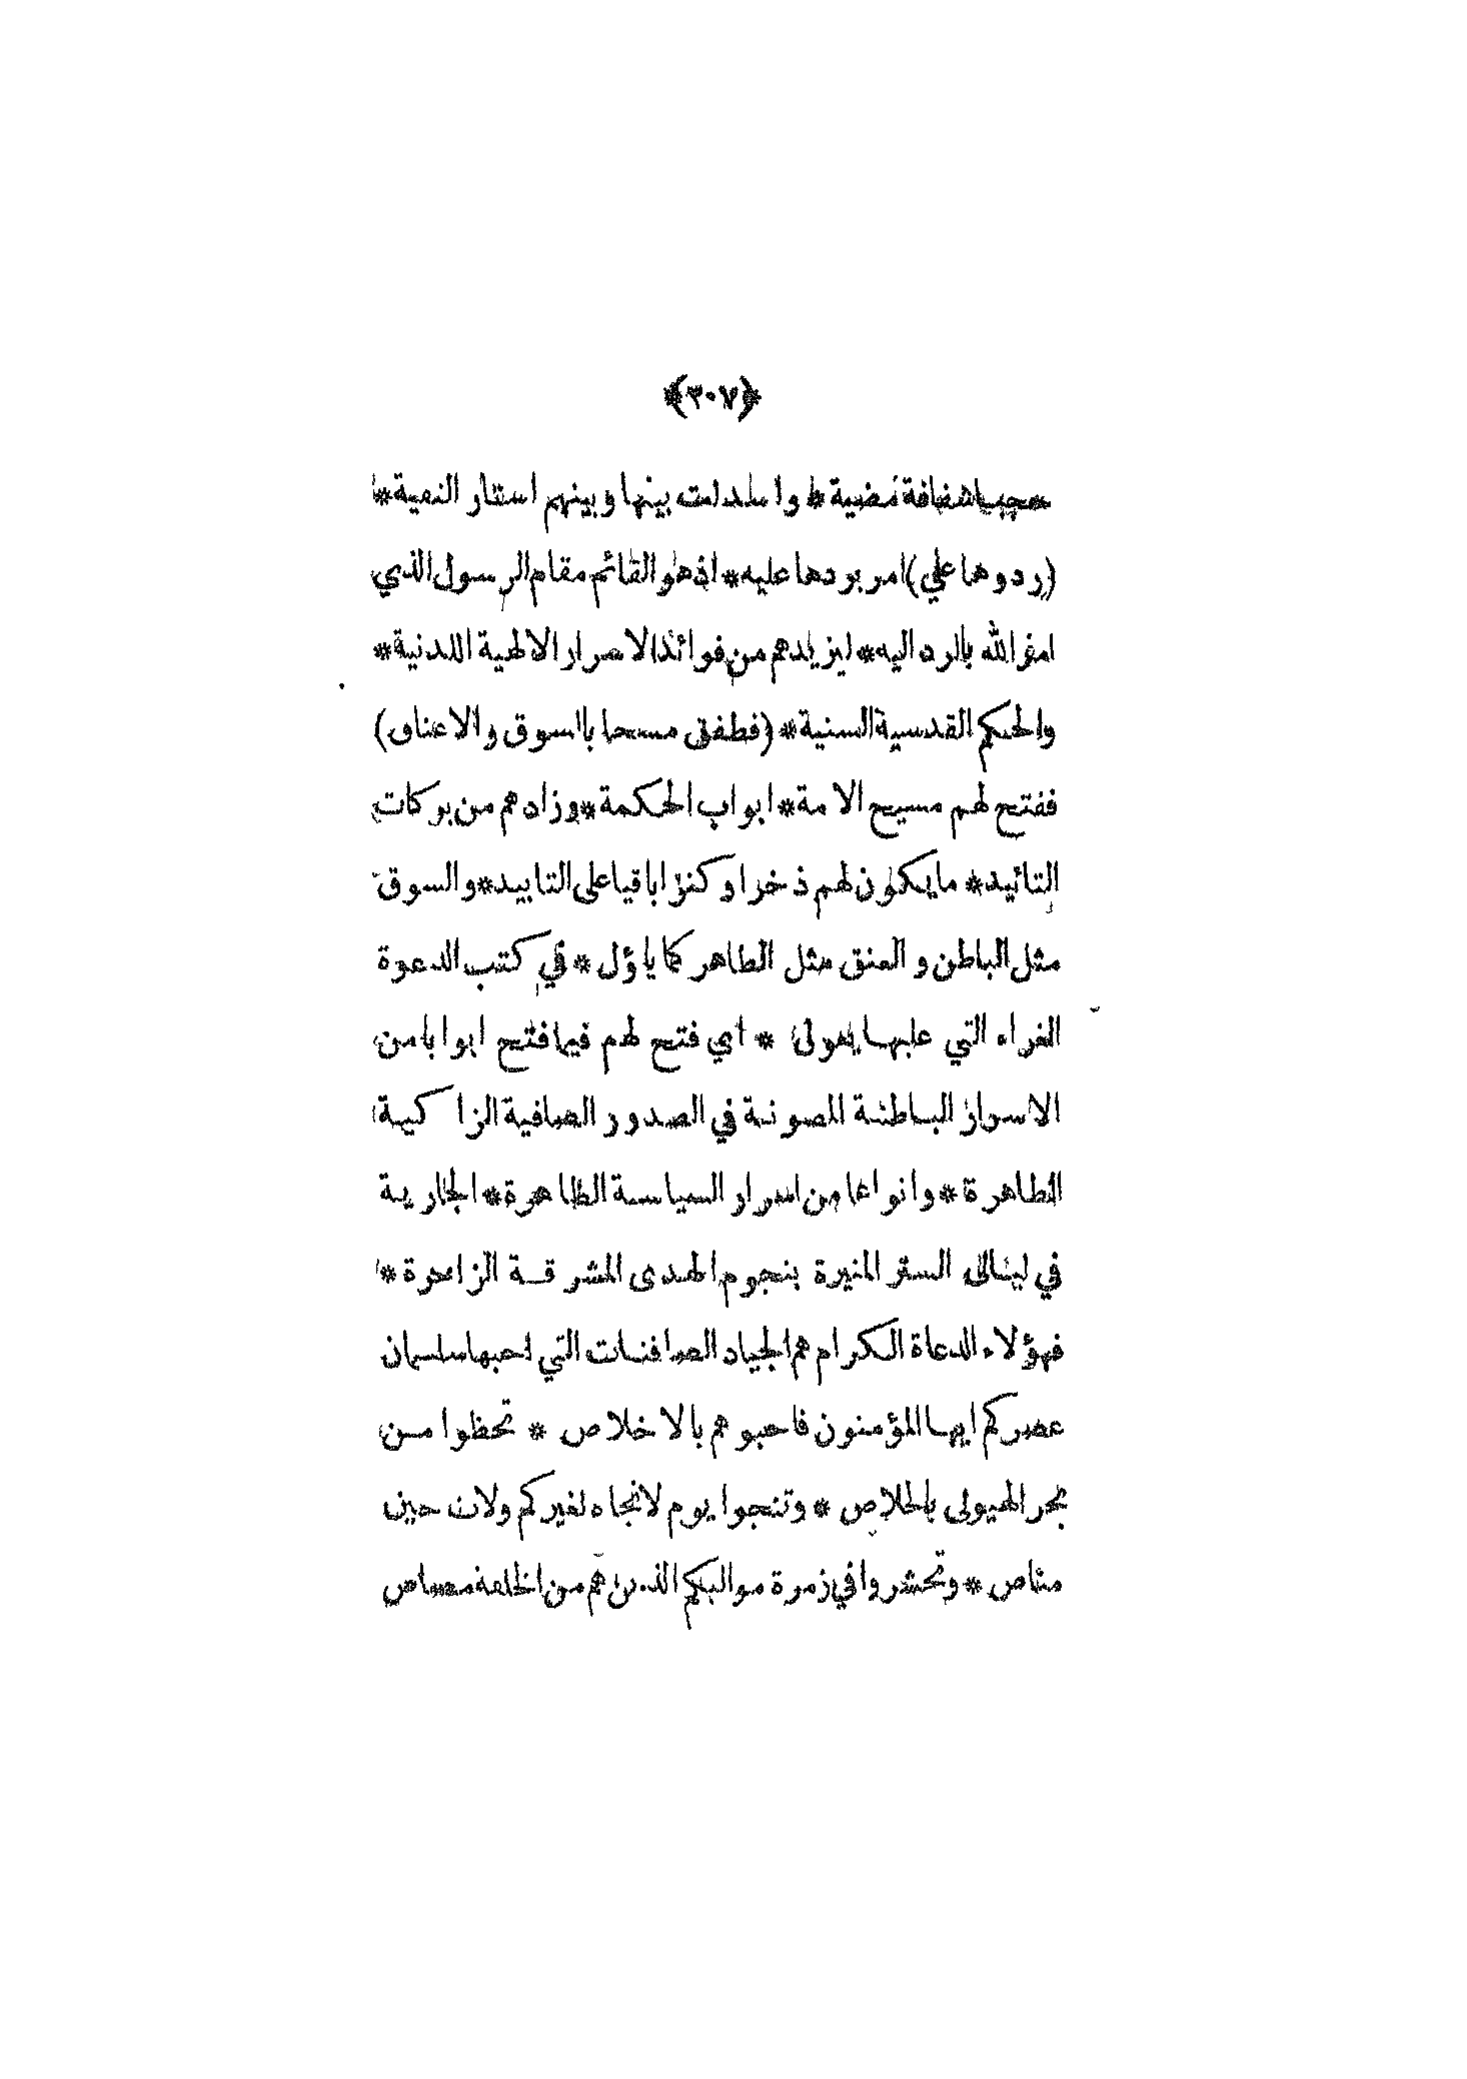 ﴿٣٠٧﴾
حجبا شفافة مضية * واسدلت بينها وبينهم استار الغيبة *
(ردوها علي) امر بردها عليه * اذ هو القائم مقام الرسول الذي
امر الله بالرد اليه * ليزيدهم من فوائد الاسرار الالهية اللدنية *
والحكم القدسية السنية * (فطفق مسحا بالسوق والاعناق)
ففتح لهم مسيح الامة * ابواب الحكمة * وزادهم من بركات
التائيد * ما يكون لهم ذخرا وكنزا باقيا على التابيد * والسوق
مثل الباطن والعنق مثل الظاهر كما ياؤل * في كتب الدعوة
الغراء التي عليها يعول * اي فتح لهم فيما فتح ابوابا من
الاسرار الباطنة المصونة في الصدور الصافية الزاكية
الطاهرة * وانواعا من اسرار السياسة الظاهرة * الجارية
في ليالى الستر المنيرة بنجوم الهدى المشرقة الزاهرة *
فهؤلاء الدعاة الكرام هم الجياد الصافنات التي احبها سليمان
عصركم ايها المؤمنون فاحبوهم بالاخلاص * تحظوا من
بحر الهيولى بالخلاص * وتنجوا يوم لانجاه لغيركم ولات حين
مناص * وتحشروا في زمرة مواليكم الذين هم من